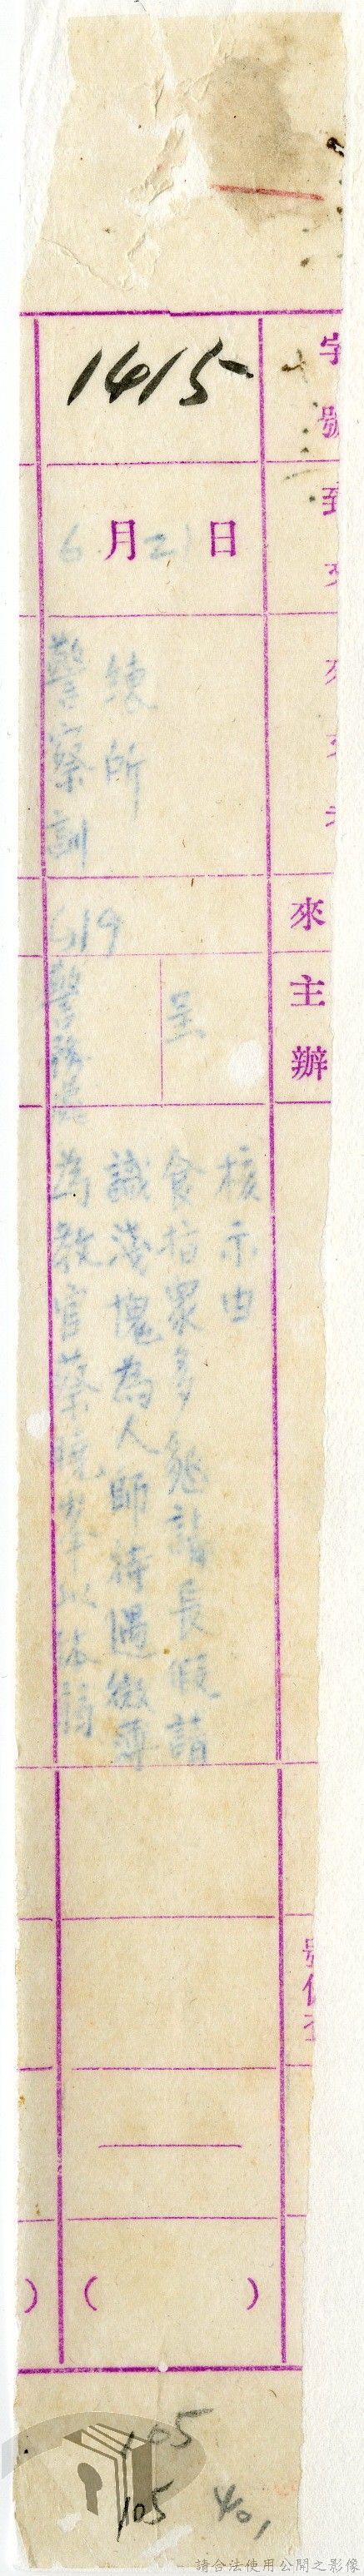 字號
到文
1415
6月21日
警察訓
練所
619
警
呈
來
主
辦
為教官蔡曉
識淺愧為人師待遇微薄
食指眾多懇請長假請
核示由
(
)
)
105
105
401
請合法使用公開之影像